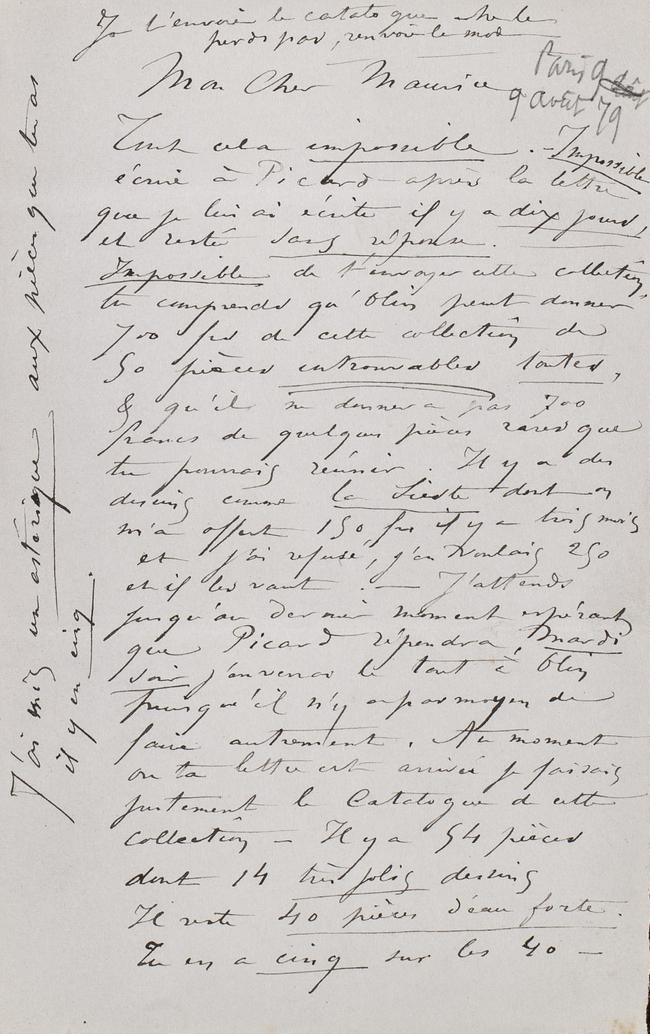 Je t'envoie le catalogue ne le
perds pas, renvoie le moi
Mon Cher Maurice
Paris 9
9 août 79
Tout cela impossible. - Impossible
écrire à Picard après la lettre
que je lui ai écrite il y a dix jours,
et restée sans réponse.
Impossible de t'envoyer cette collection,
tu comprends qu'Olin peut donner
700 frs de cette collection de
50 pièces introuvables toutes,
& qu'il ne donnera pas 700
francs de quelques pièces rares que
tu pourrais réunir. Il y a des
dessins comme la Sieste dont on
m'a offert 150 frs il y a trois mois
et j'ai refusé, j'en voulais 250
et il les vaut. — J'attends
jusqu'au dernier moment espérant
que Picard répondra, mardi
soir j'enverrai le tout à Olin
puisqu'il n'y a pas moyen de
faire autrement. Au moment
où ta lettre est arrivée je faisais
justement le Catalogue de cette
collection — Il y a 54 pièces
dont 14 très jolis dessins
Il reste 40 pièces d'eau forte.
Tu en a cinq sur les 40 —
J'ai mis un astérique aux pièces que tu as
il y en cinq.